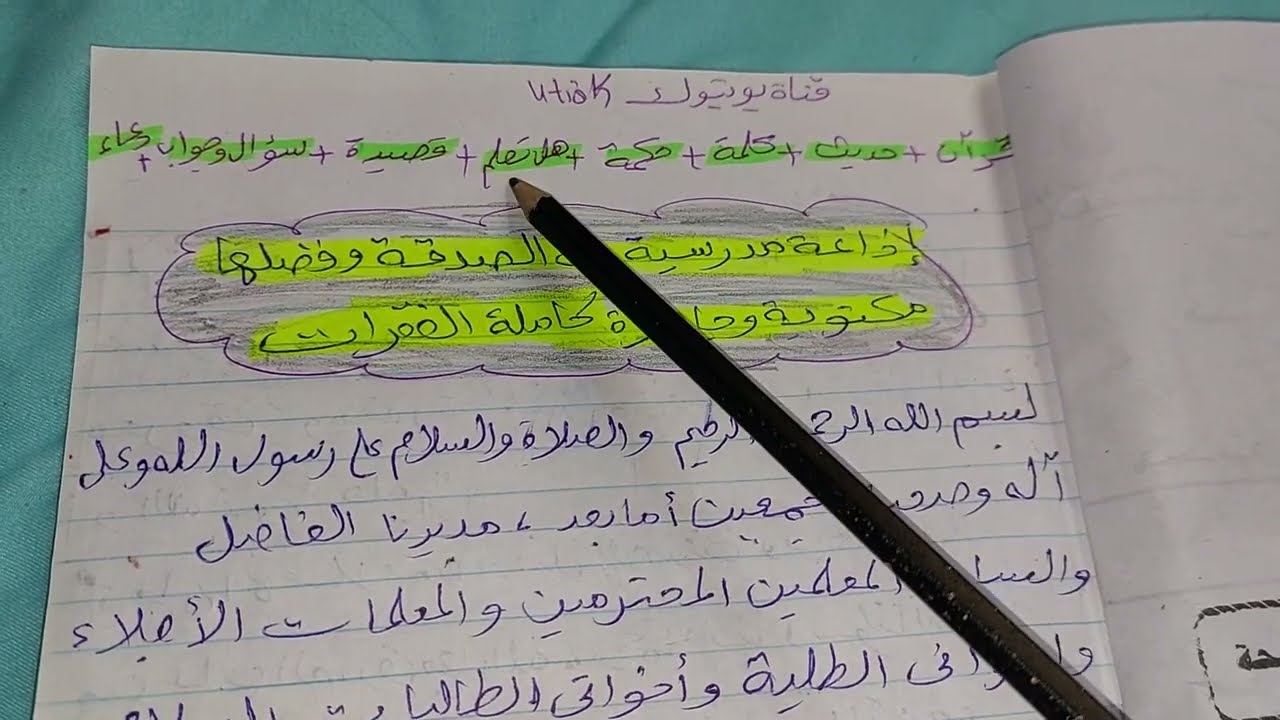 قناة يوتيوك utiok
قرآن + حديث + كلمة + حكمة + هل تعلم + قصيدة + سؤال وجواب + دعاء
إذاعة مدرسية الصدقة وفضلها
مكتوبة كاملة الفقرات
بسم الله الرحمن الرحيم والصلاة والسلام على رسول الله وعلى
آله أجمعين أما بعد ، مديرنا الفاضل
المعلمين المحترمين والمعلمات الأجلاء
الطلبة وأخواتي الطالبات
حة